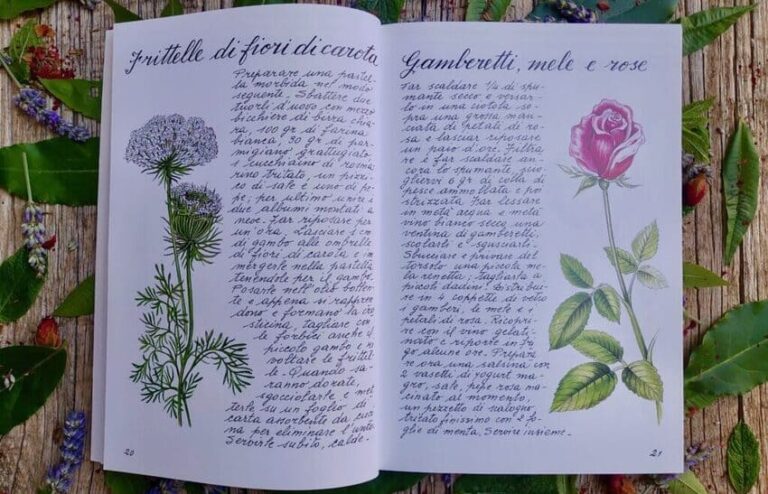 Frittelle di fiori di carota
Preparare una pastel-
la morbida nel modo
seguente. Sbattere due
tuorli d'uovo con mezzo
bicchiere di birra chia-
ra, 100 gr di farina
bianca, 30 gr di par-
migiano grattugiato,
1 cucchiaino di rosma-
rino tritato, un pizzi-
co di sale e uno di pe-
pe; per ultimo unire i
due albumi montati a
neve. Far riposare per
un'ora. Lasciare 5 cm
di gambo alle ombrelle
di fiori di carota e im-
mergerle nella pastella
tenendole per il gambo.
Posarle nell'olio bollen-
te e appena si rappren-
dono e formano la cro-
sticina, tagliare con
le forbici anche il
piccolo gambo e ri-
voltare le frittel-
le. Quando sa-
ranno dorate,
sgocciolarle e met-
terle su un foglio di
carta assorbente da cuci-
na per eliminare l'unto.
Servirle subito, calde.
20
Gamberetti, mele e rose
Far scaldare 1/4 di spu-
mante secco e versar-
lo in una ciotola so-
pra una grossa man-
ciata di petali di ro-
sa e lasciar riposare
un paio d'ore. Filtra-
re e far scaldare an-
cora lo spumante, scio-
gliervi 6 gr di colla di
pesce ammollata e poi
strizzata. Far lessare
in metà acqua e metà
vino bianco secco una
ventina di gamberetti,
scolarli e sgusciarli.
Sbucciare e privare del
torsolo una piccola me-
la renetta; tagliarla a
piccoli dadini. Distribui-
re in 4 coppette di vetro
i gamberi, le mele e i
petali di rosa. Ricopri-
re con il vino gelati-
nato e riporre in fri-
go alcune ore. Prepara-
re ora una salsina con
2 vasetti di yogurt ma-
gro, sale, pepe rosa ma-
cinato al momento,
un pezzetto di scalogno
tritato finissimo con 2 fo-
glie di menta. Servire insieme.
21